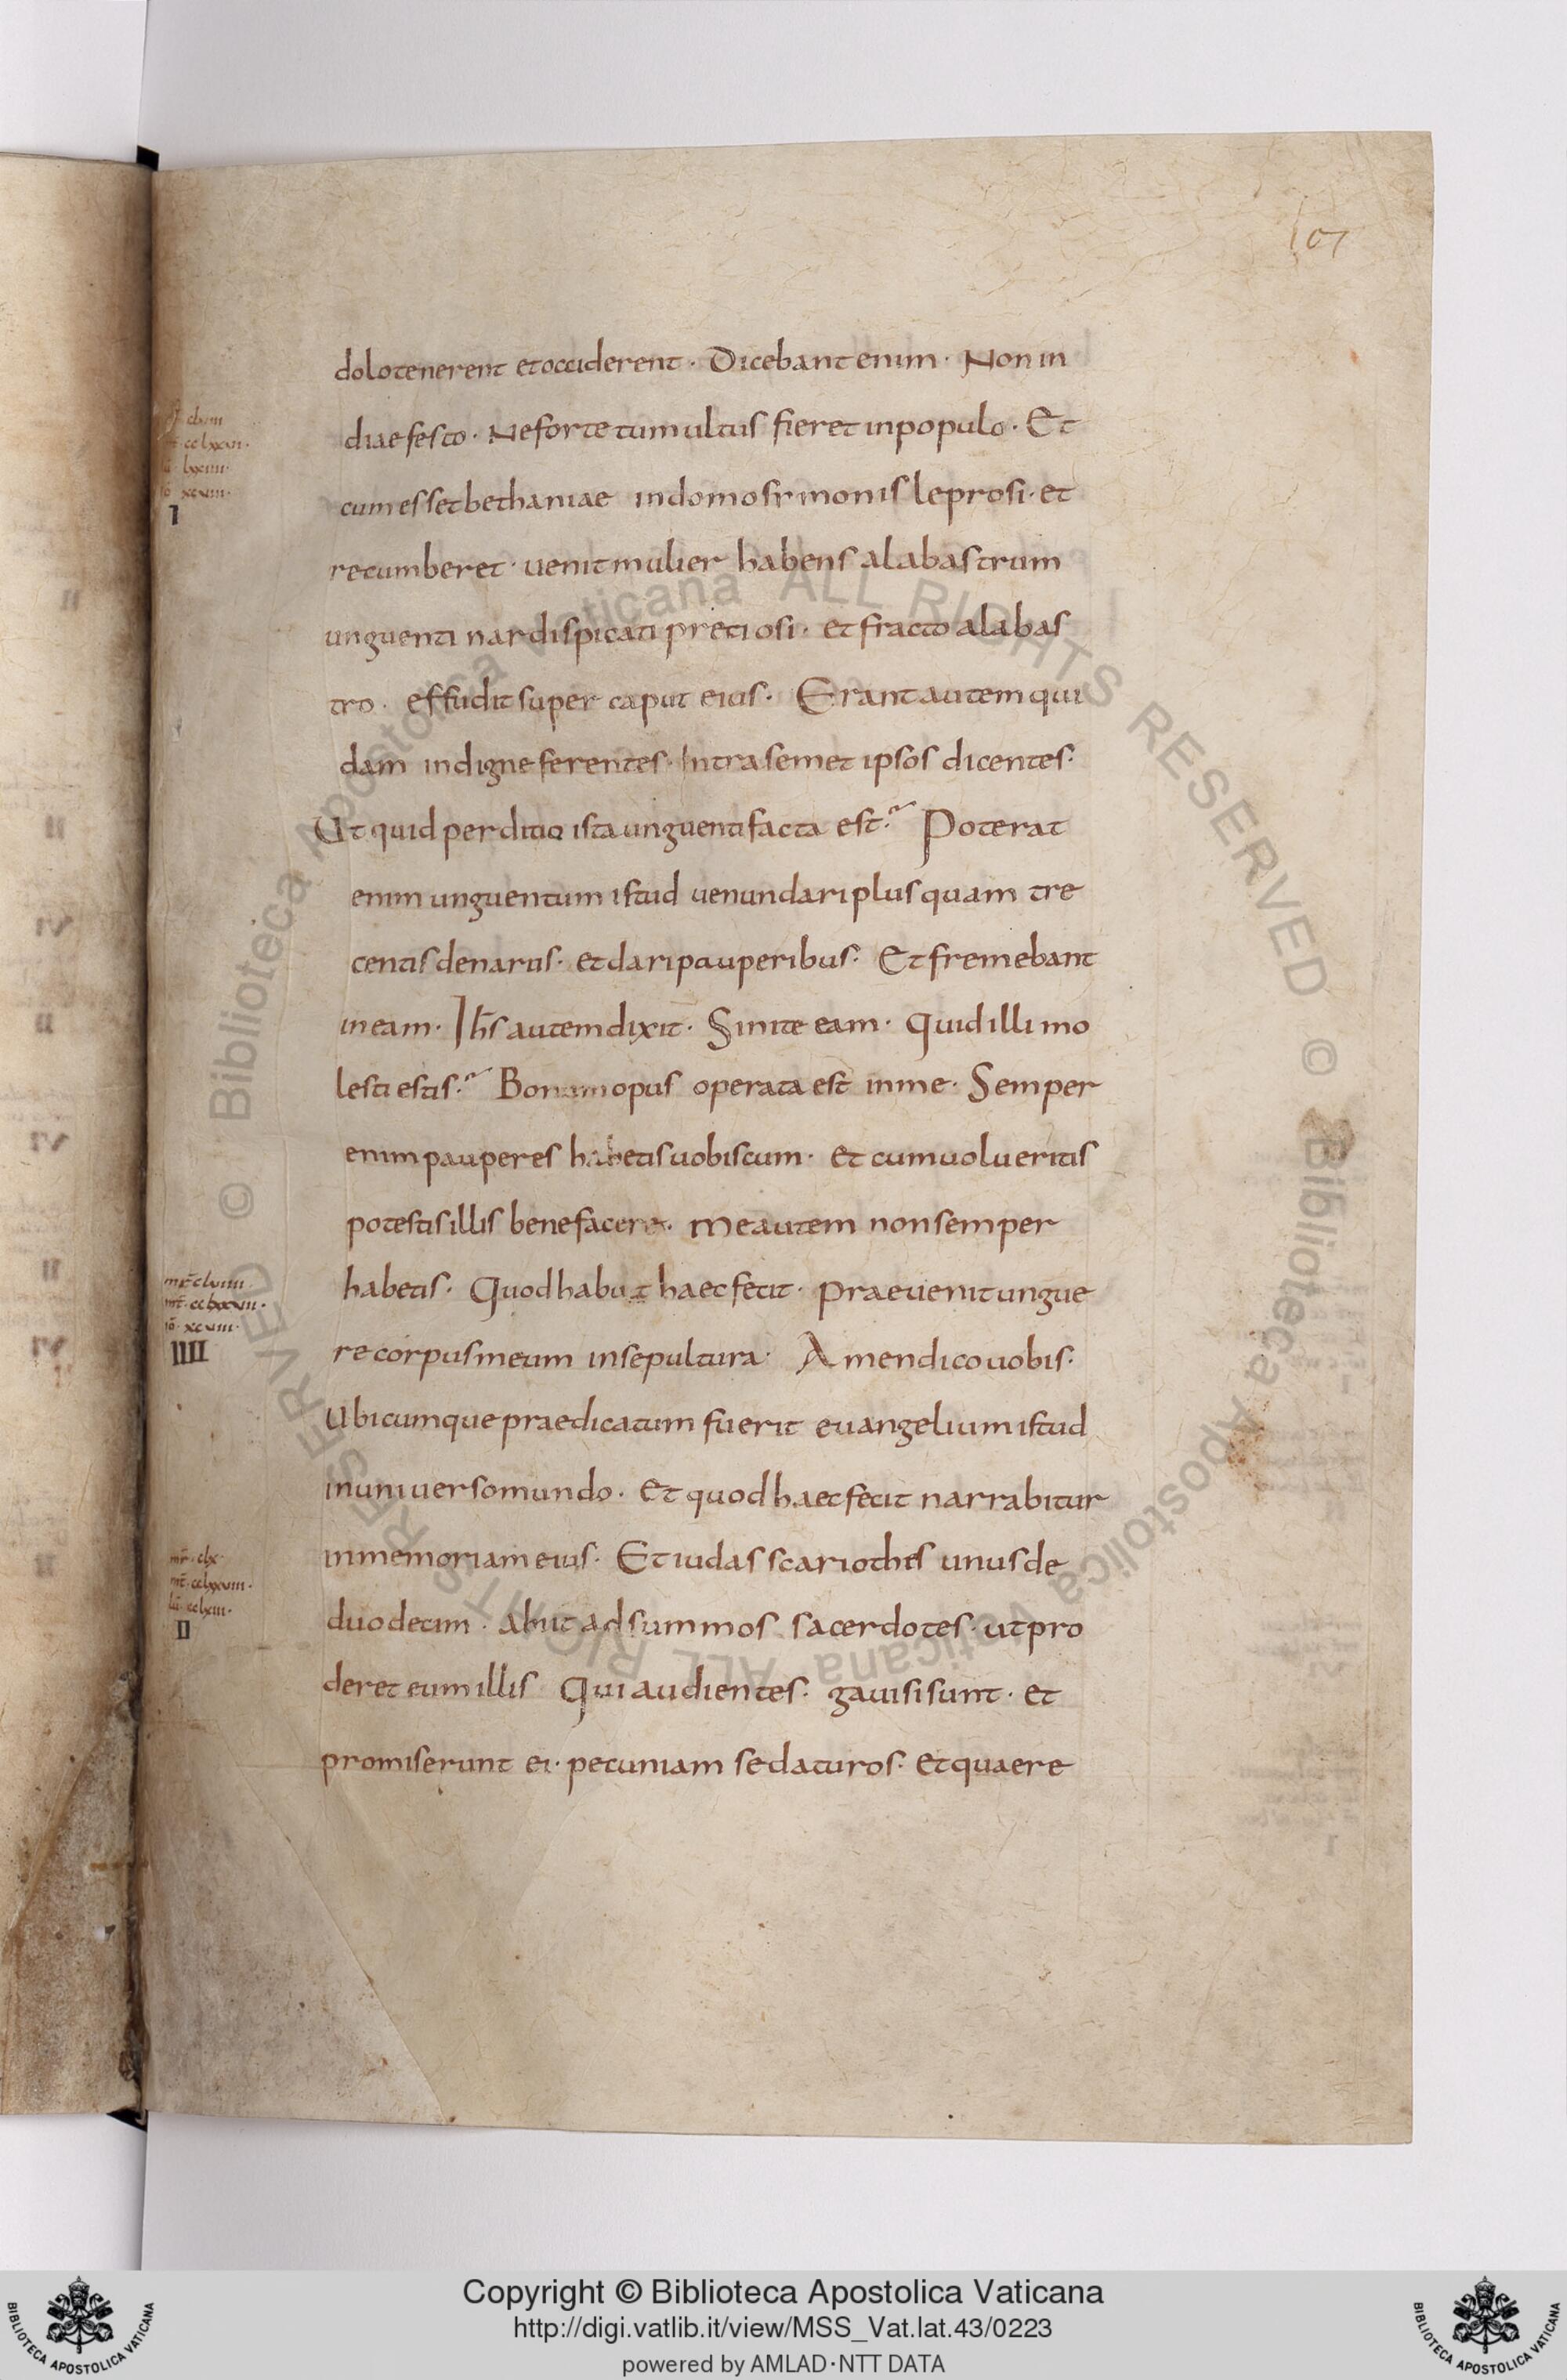 107
dolo tenerent et occiderent · Dicebant enim · Non in
die festo · Ne forte tumultus fieret in populo · Et
cum esset bethaniae in domo symonis leprosi · et
recumberet · uenit mulier habens alabastrum
unguenti nardi spicati pretiosi · et fracto alabas
tro · effudit super caput eius · Erant autem qui
dam indigne ferentes · Intra semet ipsos dicentes ·
Ut quid perditio ista unguenti facta est ? Poterat
enim unguentum istud uenundari plus quam tre
centis denariis · et dari pauperibus · Et fremebant
in eam · Ihs̄ autem dixit · Sinite eam · Quid illi mo
lesti estis ? Bonum opus operata est in me · Semper
enim pauperes habetis uobiscum · et cum uolueritis
potestis illis benefacere · me autem non semper
habetis · Quod habuit haec fecit · praeuenit ungue
re corpus meum in sepultura · Amen dico uobis ·
Ubicumque praedicatum fuerit euangelium istud
in uniuerso mundo · et quod haec fecit narrabitur
in memoriam eius · Et iudas scariothes unus de
duodecim · abiit ad summos sacerdotes · ut pro
deret eum illis Qui audientes · gauisi sunt · et
promiserunt ei · pecuniam se daturos · et quaere
lxxiiii ·
xcviii ·
I
mr̄ clviiii
mt̄ · cclxxvii ·
iō · xcviii ·
IIII
mr̄ · clx ·
mt̄ · cclxxviii ·
lū · cclxiii ·
II
© Biblioteca Apostolica Vaticana ALL RIGHTS RESERVED © Biblioteca Apostolica Vaticana ALL RIGHTS RESERVED
Copyright © Biblioteca Apostolica Vaticana
http://digi.vatlib.it/view/MSS_Vat.lat.43/0223
powered by AMLAD·NTT DATA
BIBLIOTECA APOSTOLICA VATICANA
BIBLIOTECA APOSTOLICA VATICANA